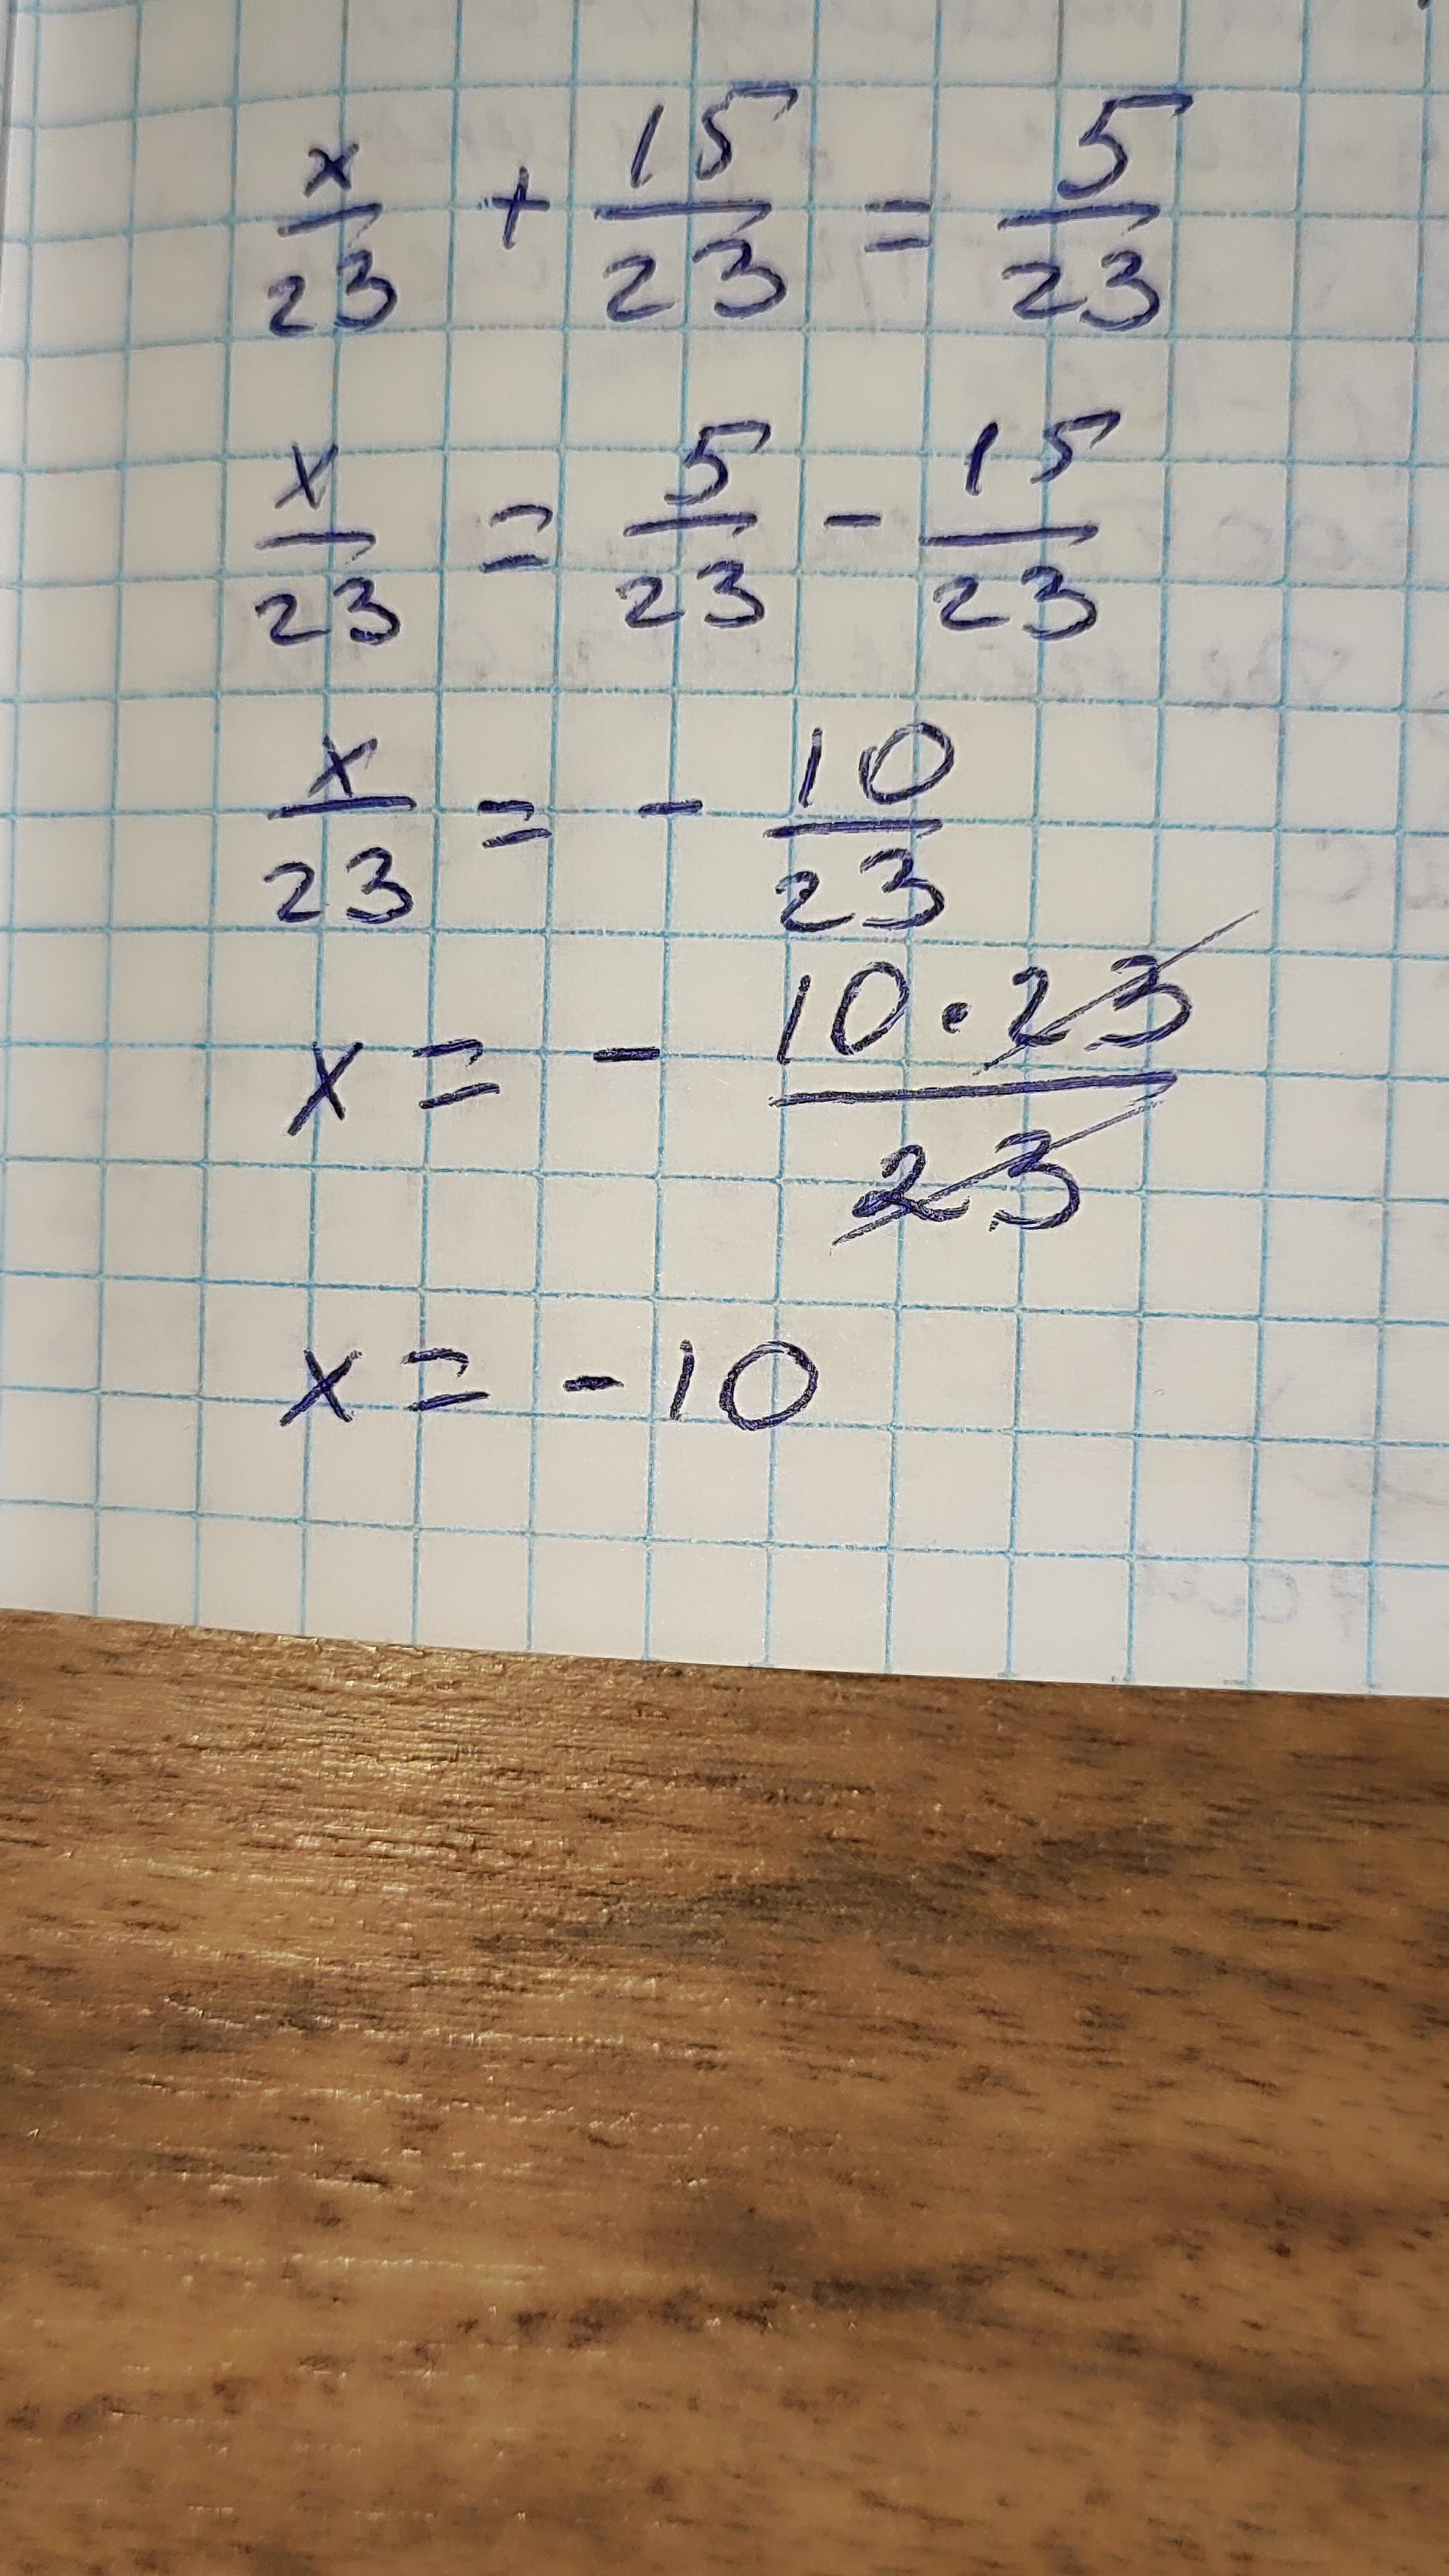 x/23 + 15/23 = 5/23
x/23 = 5/23 - 15/23
x/23 = - 10/23
x = - 10·23/23
x = -10